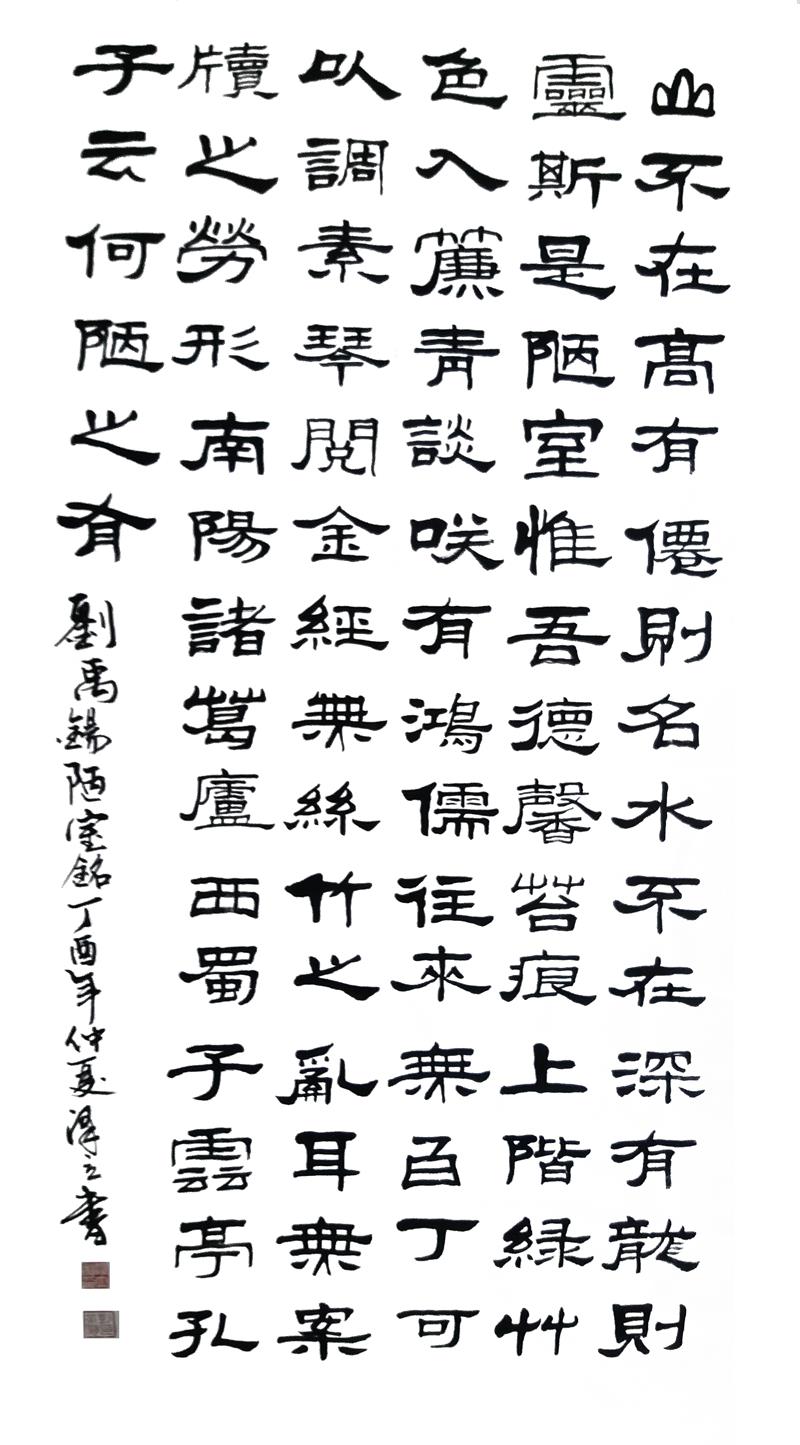 山不在髙有僊則名水不在深有龍則
靈斯是陋室惟吾德馨苔痕上階綠艸
色入簾青談咲有鴻儒往來無百丁可
以調素琴閱金經無絲竹之亂耳無案
牘之勞形南陽諸葛廬西蜀子雲亭孔
子云何陋之有
劉禹錫陋室銘丁酉年仲夏書